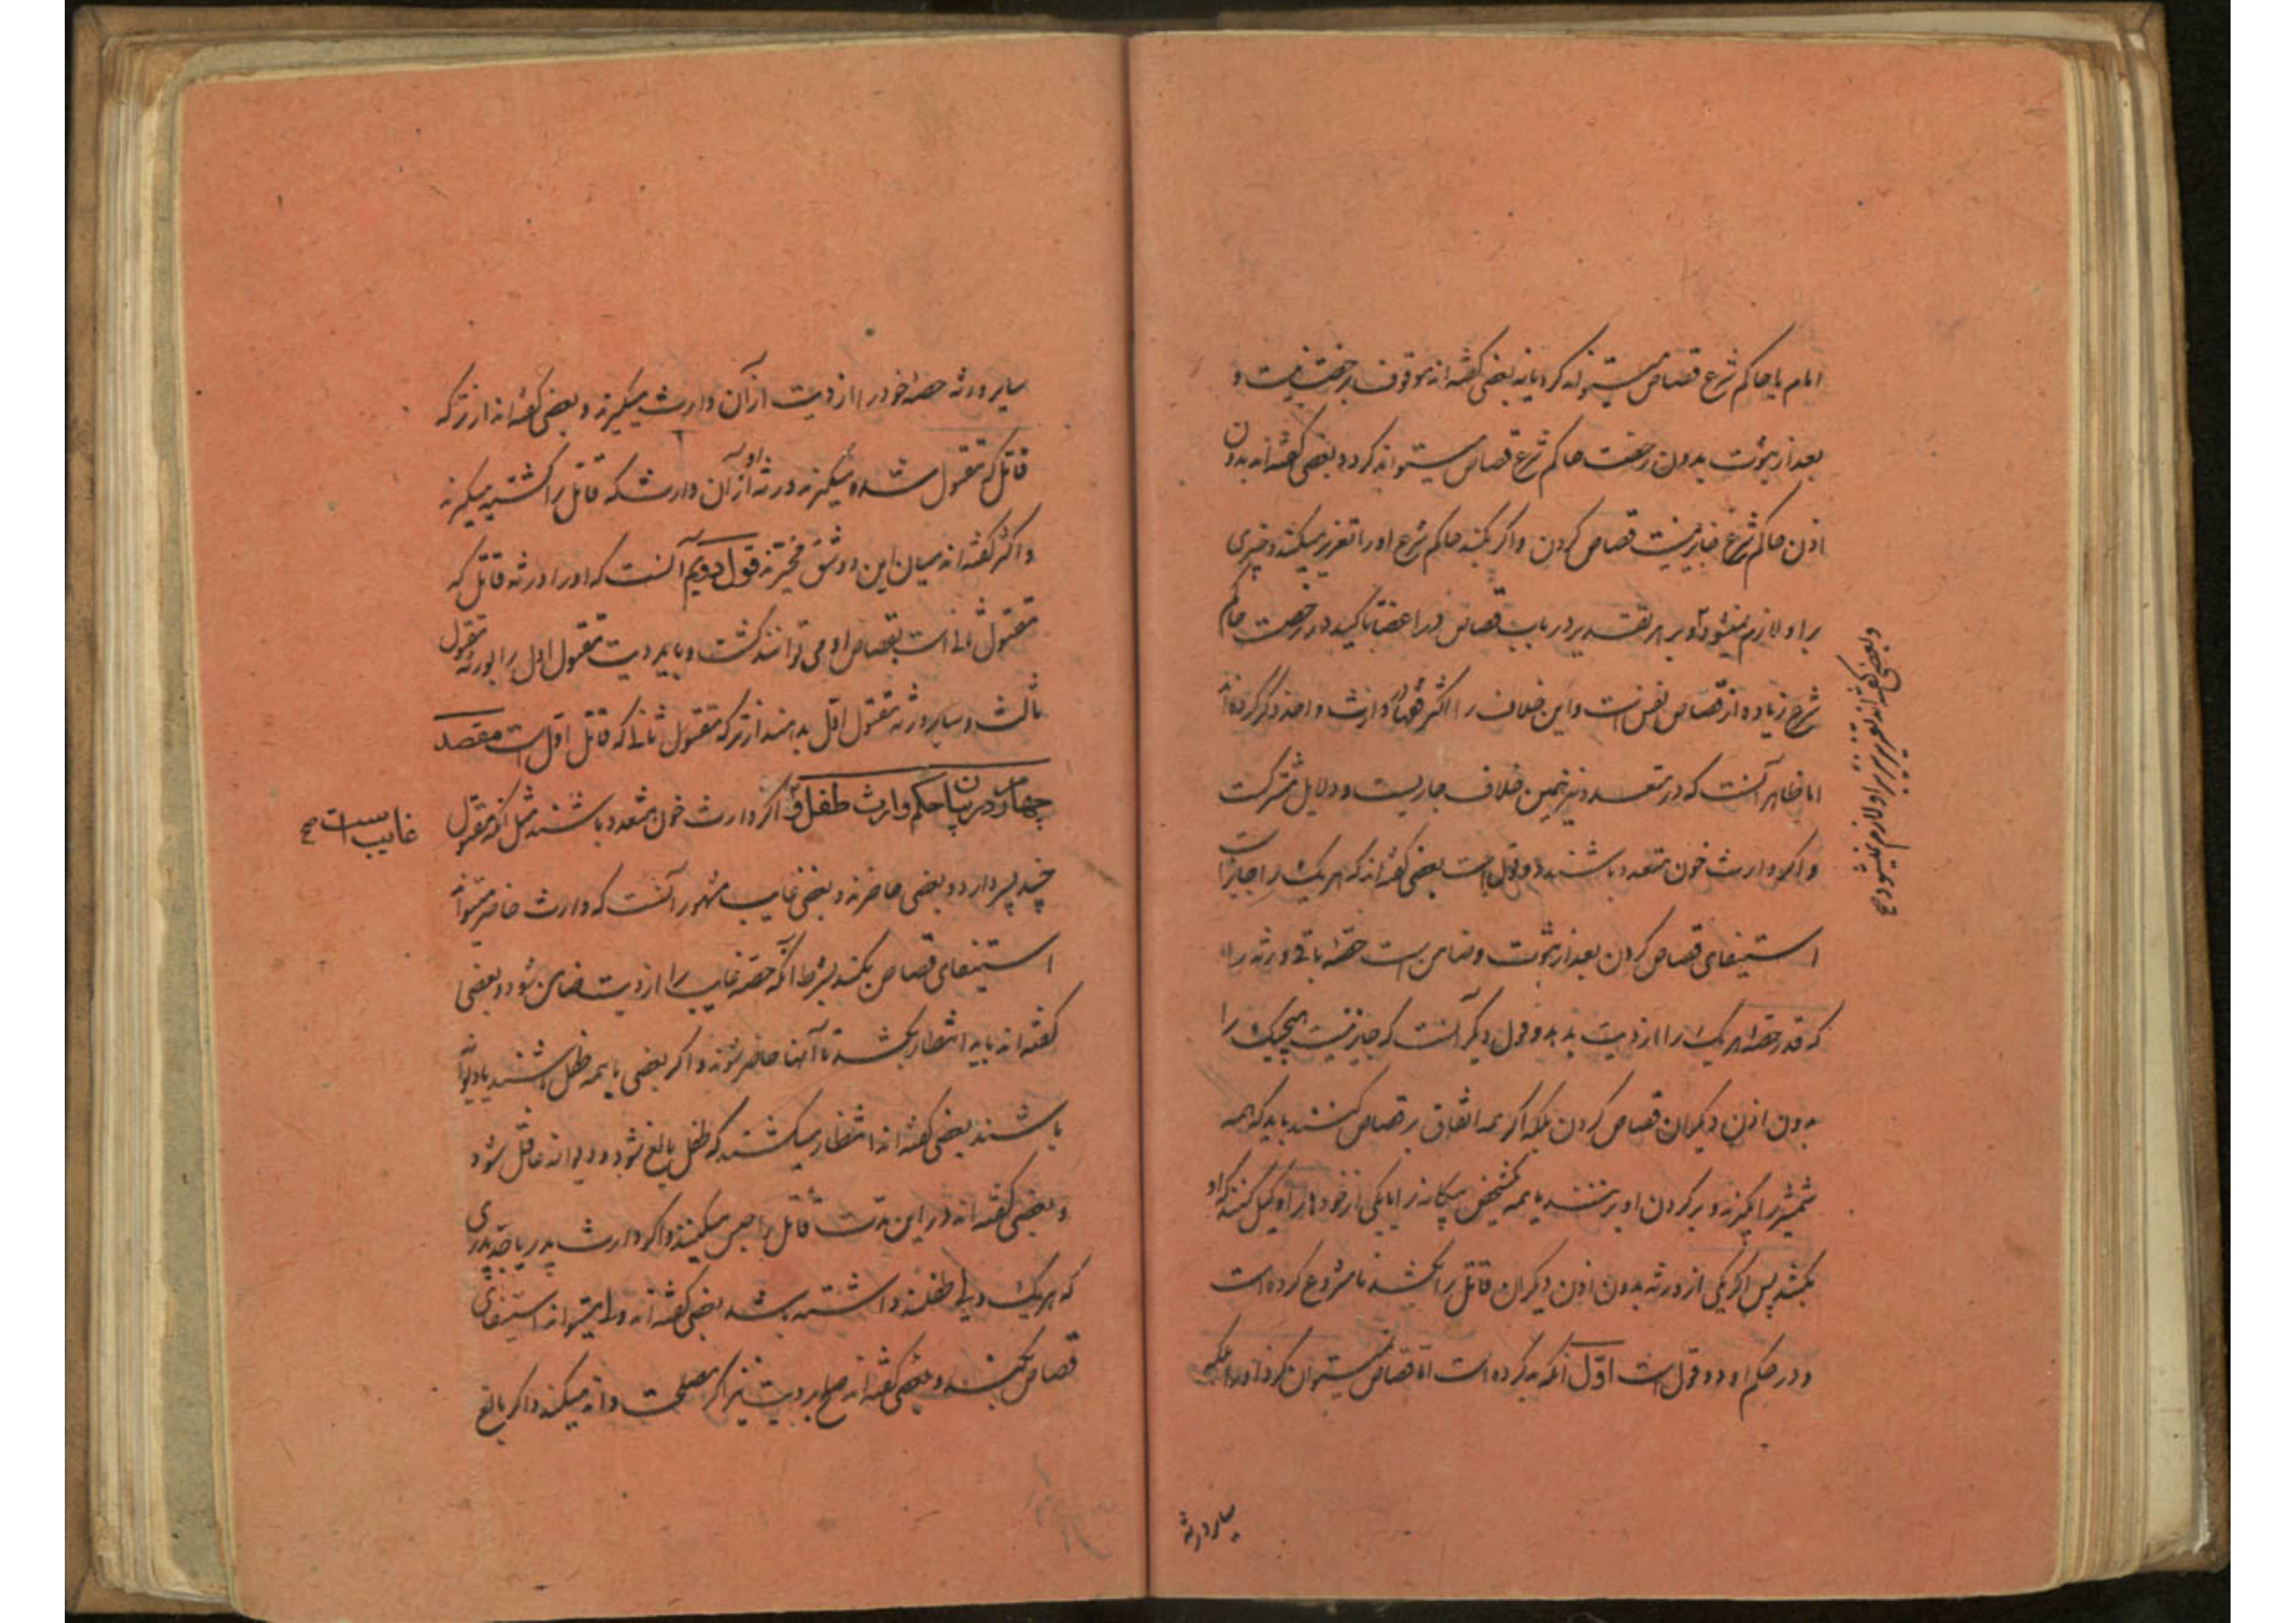 امام یا حاکم شرع قصاص میتواند کرد یا نه بعضی گفته‌اند موقوف برخصت نیست و
بعد از ثبوت بدون رخصت حاکم شرع قصاص میتواند کرد و بعضی گفته‌اند بدون
اذن حاکم شرع جایز نیست قصاص کردن و اگر بکند حاکم شرع او را تعزیر میکند و چیزی
بر او لازم نمیشود و بر هر تقدیر در باب قصاص در اعضا تاکید در رخصت حاکم
شرع زیاده از قصاص نفس است و این خلاف را اکثر در وارث واحد ذکر کرده‌اند
اما ظاهر آنست که در متعدد نیز همین خلاف جاریست و دلایل مشترکست
و اگر وارث خون متعدد باشند دو قول است بعضی گفته‌اند که هر یک را جایز است
استیفای قصاص کردن بعد از ثبوت و ضامن است حصه باقی ورثه را
که قدر حصه هر یک را از دیت بدهد و قول دیگر آنست که جایز نیست هیچیک را
بدون اذن دیگران قصاص کردن بلکه اگر همه اتفاق بر قصاص کنند باید که همه
شمشیر را بگیرند و بر گردن او بزنند یا همه شخص بیگانه را یا یکی از خودها را وکیل کنند که او
بکشد پس اگر یکی از ورثه بدون اذن دیگران قاتل را بکشد نامشروع کرده است
و در حکم او دو قول است اوّل آنکه بد کرده است اما قصاص نمیتوان کرد او را بلکه
سایر ورثه
سایر ورثه حصه خود را از دیت از آن وارث میگیرند و بعضی گفته‌اند از ترکه
قاتل که مقتول شده میگیرند و ورثه او از آن وارث که قاتل را کشته میگیرند
و اکثر گفته‌اند میان این دو شق مخیّرند قول دویم آنست که او را ورثه قاتل که
مقتول ثانی است بقصاص او می توانند کشت و باید دیت مقتول اول را بورثه مقتول
ثالث و سایر ورثه مقتول اوّل بدهند از ترکه مقتول ثانی که قاتل اوّل است مقصد
چهارم در بیان حکم وارث طفل و غایب است صح اگر وارث خون متعدد باشند مثل آنکه مقتول
چند پسر دارد و بعضی حاضرند و بعضی غایب مشهور آنست که وارث حاضر میتواند
استیفای قصاص بکند بشرط آنکه حصّه غایب را از دیت ضامن شود و بعضی
گفته‌اند باید انتظار بکشد تا آنها حاضر شوند و اگر بعضی یا همه طفل باشند یا دیوانه
باشند بعضی گفته‌اند انتظار میکشند که طفل بالغ شود و دیوانه عاقل شود
و بعضی گفته‌اند در این مدّت قاتل را حبس میکنند و اگر وارث پدر یا جدّ پدری
که هر یک ولی طفلند داشته باشد بعضی گفته‌اند ولی میتواند استیفای
قصاص بکند و بعضی گفته‌اند صلح بر دیت نیز اگر مصلحت داند میکند و اگر بالغ